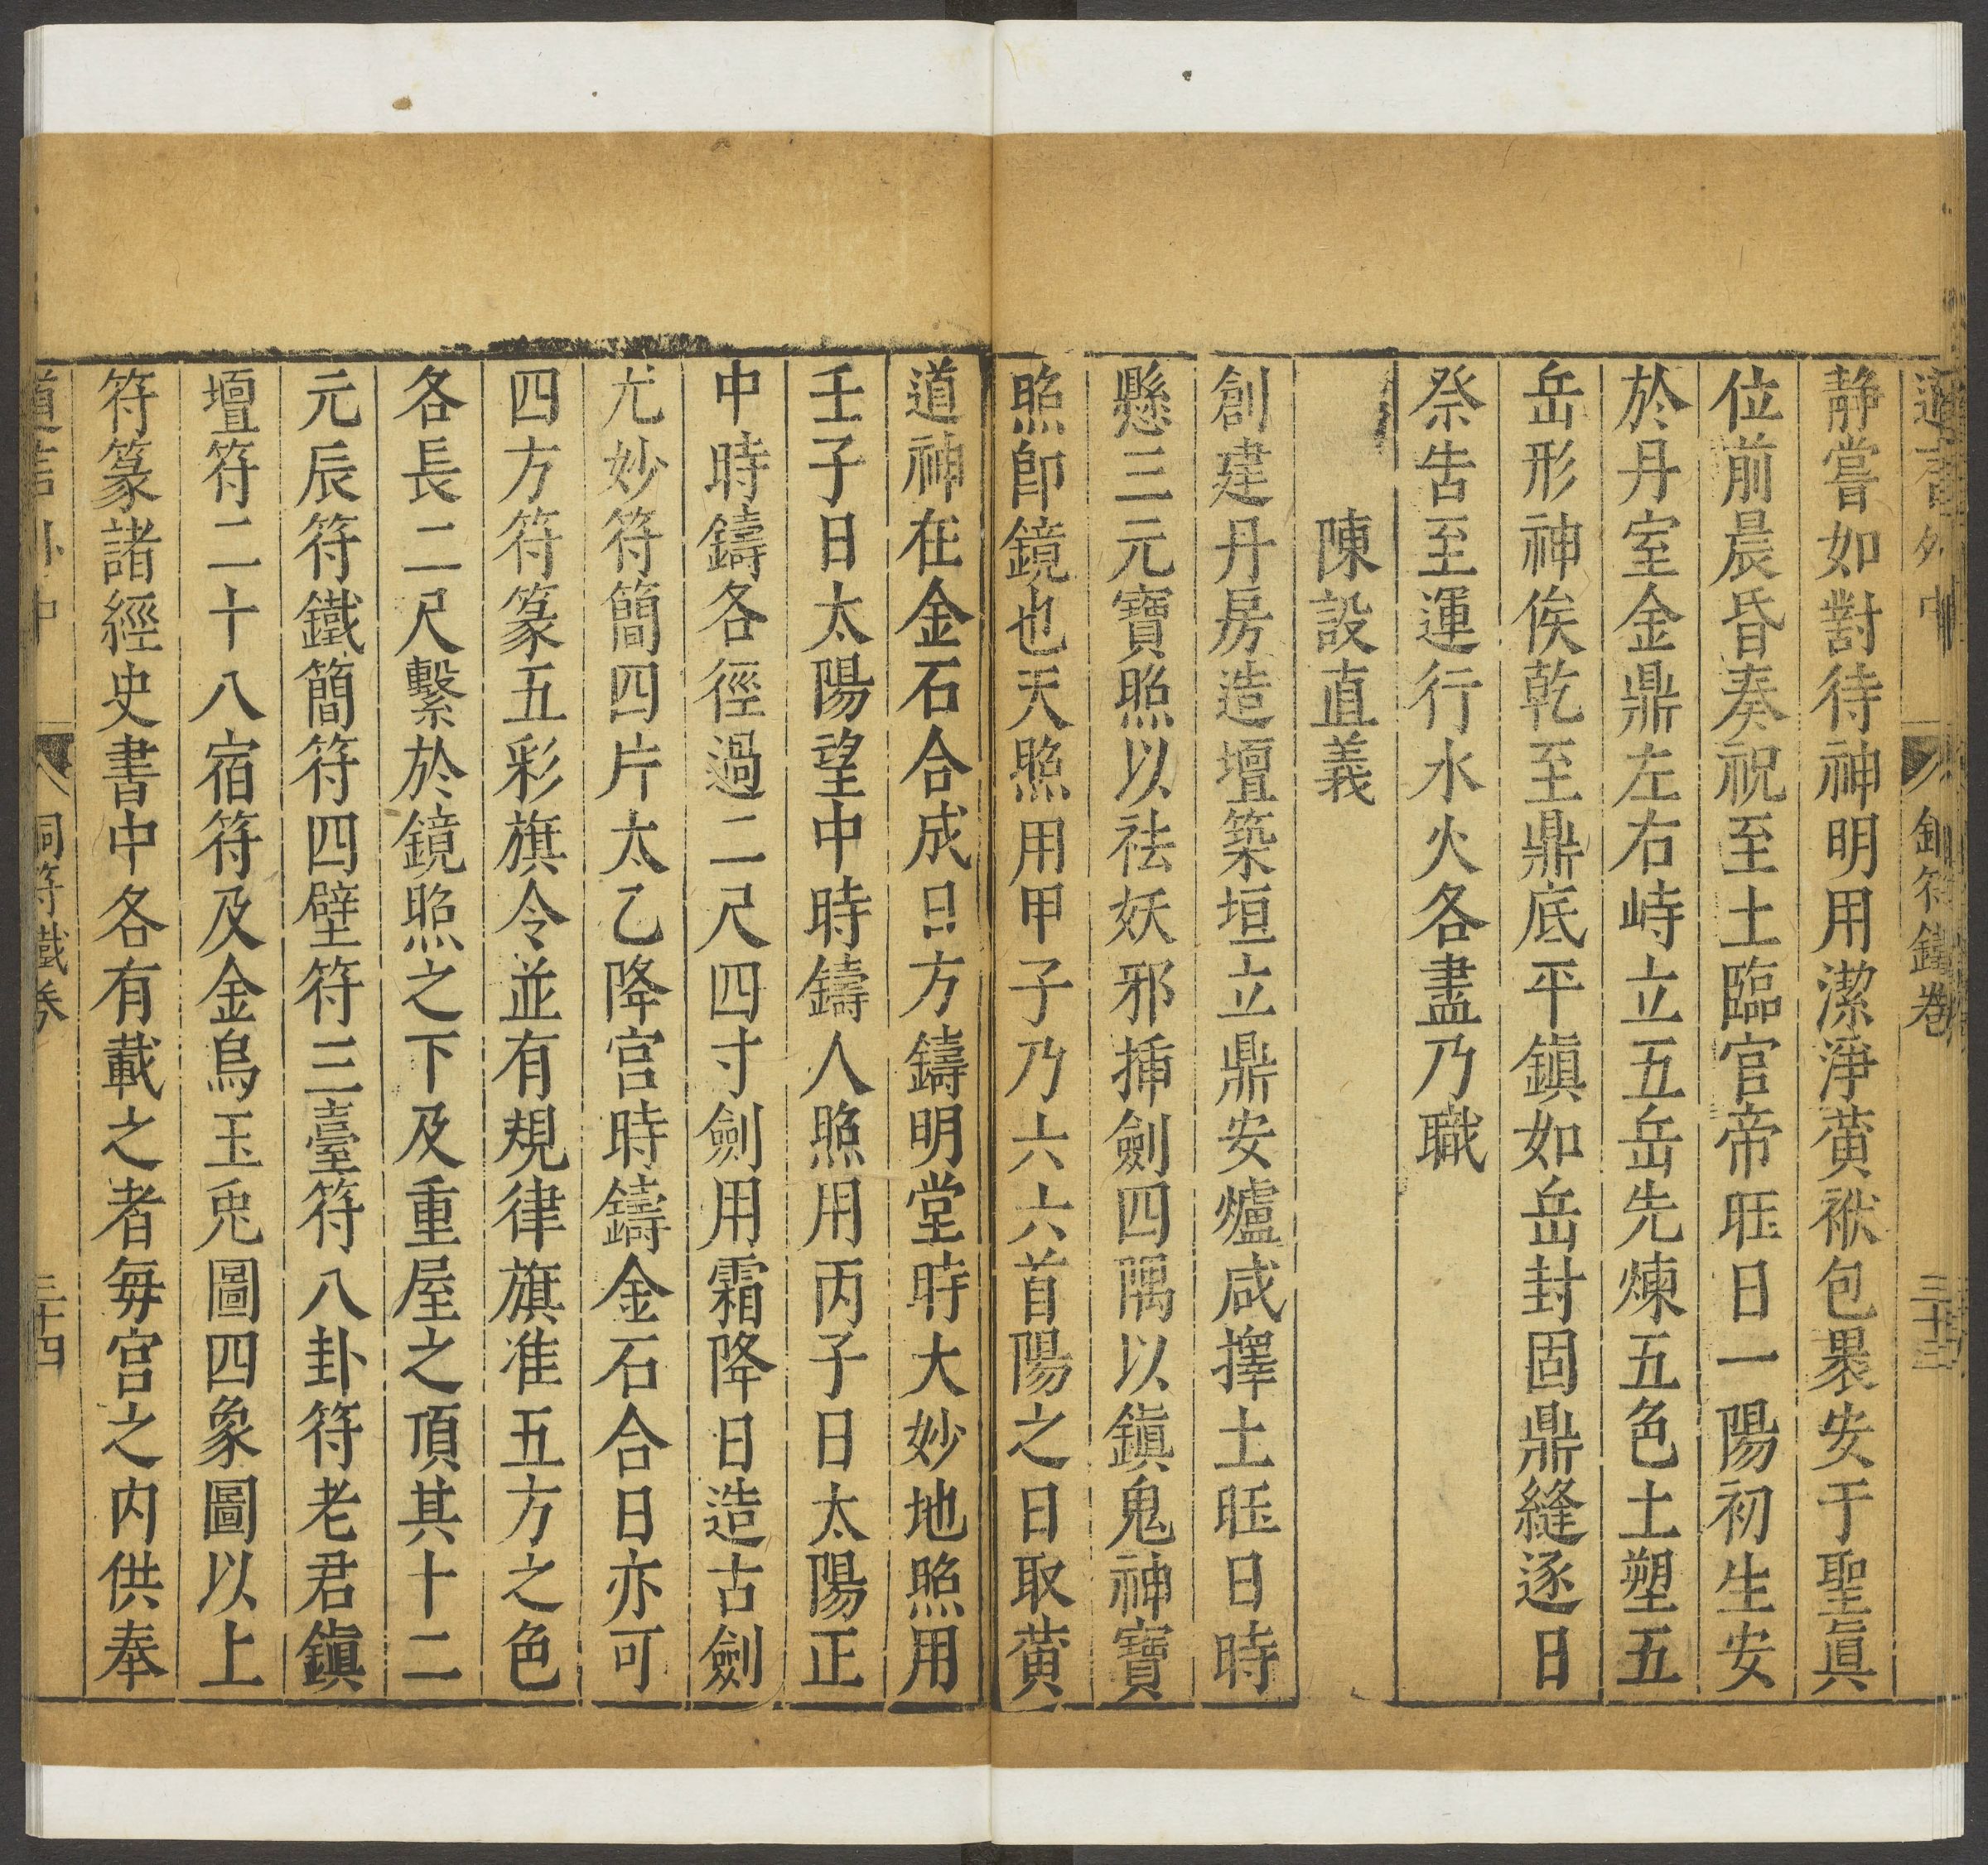 三十三
静嘗如對待神明用潔淨黄袱包褁安于聖真
位前晨昏奏祝至土臨官帝旺日一陽初生安
於丹室金鼎左右峙立五岳先煉五色土塑五
岳形神俟乾至鼎底平鎮如岳封固鼎縫逐日
祭告至運行水火各盡乃職
陳設直義
創建丹房造壇築垣立鼎安爐咸擇土旺日時
懸三元寶照以祛妖邪揷劍四隅以鎮鬼神寶
照卽鏡也天照用甲子乃六六首陽之日取黄
道神在金石合成日方鑄明堂時大妙地照用
壬子日太陽望中時鑄人照用丙子日太陽正
中時鑄各徑過二尺四寸劍用霜降日造古劍
尤妙符簡四片太乙降宫時鑄金石合日亦可
四方符篆五彩旗令並有規律旗准五方之色
各長二尺繫於鏡照之下及重屋之頂其十二
元辰符鐵簡符四壁符三臺符八卦符老君鎮
壇符二十八宿符及金烏玉兎圖四象圖以上
符篆諸經史書中各有載之者每宫之内供奉
三十四